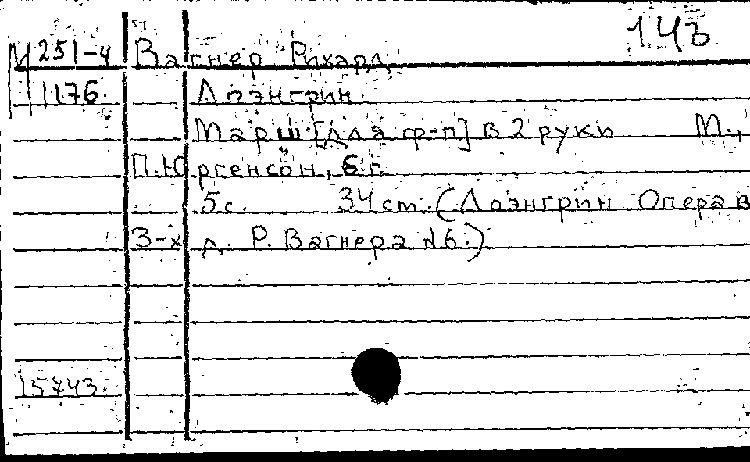 143
М 251-4 Вагнер Рихард
1176. Лоэнгрин.
Марш [для ф-п] в 2 руки М.,
П. Юргенсон, б г.
5 с. 34 cm. (Лоэнгрин Опера в
3-х д. Р. Вагнера №6.)
15743.